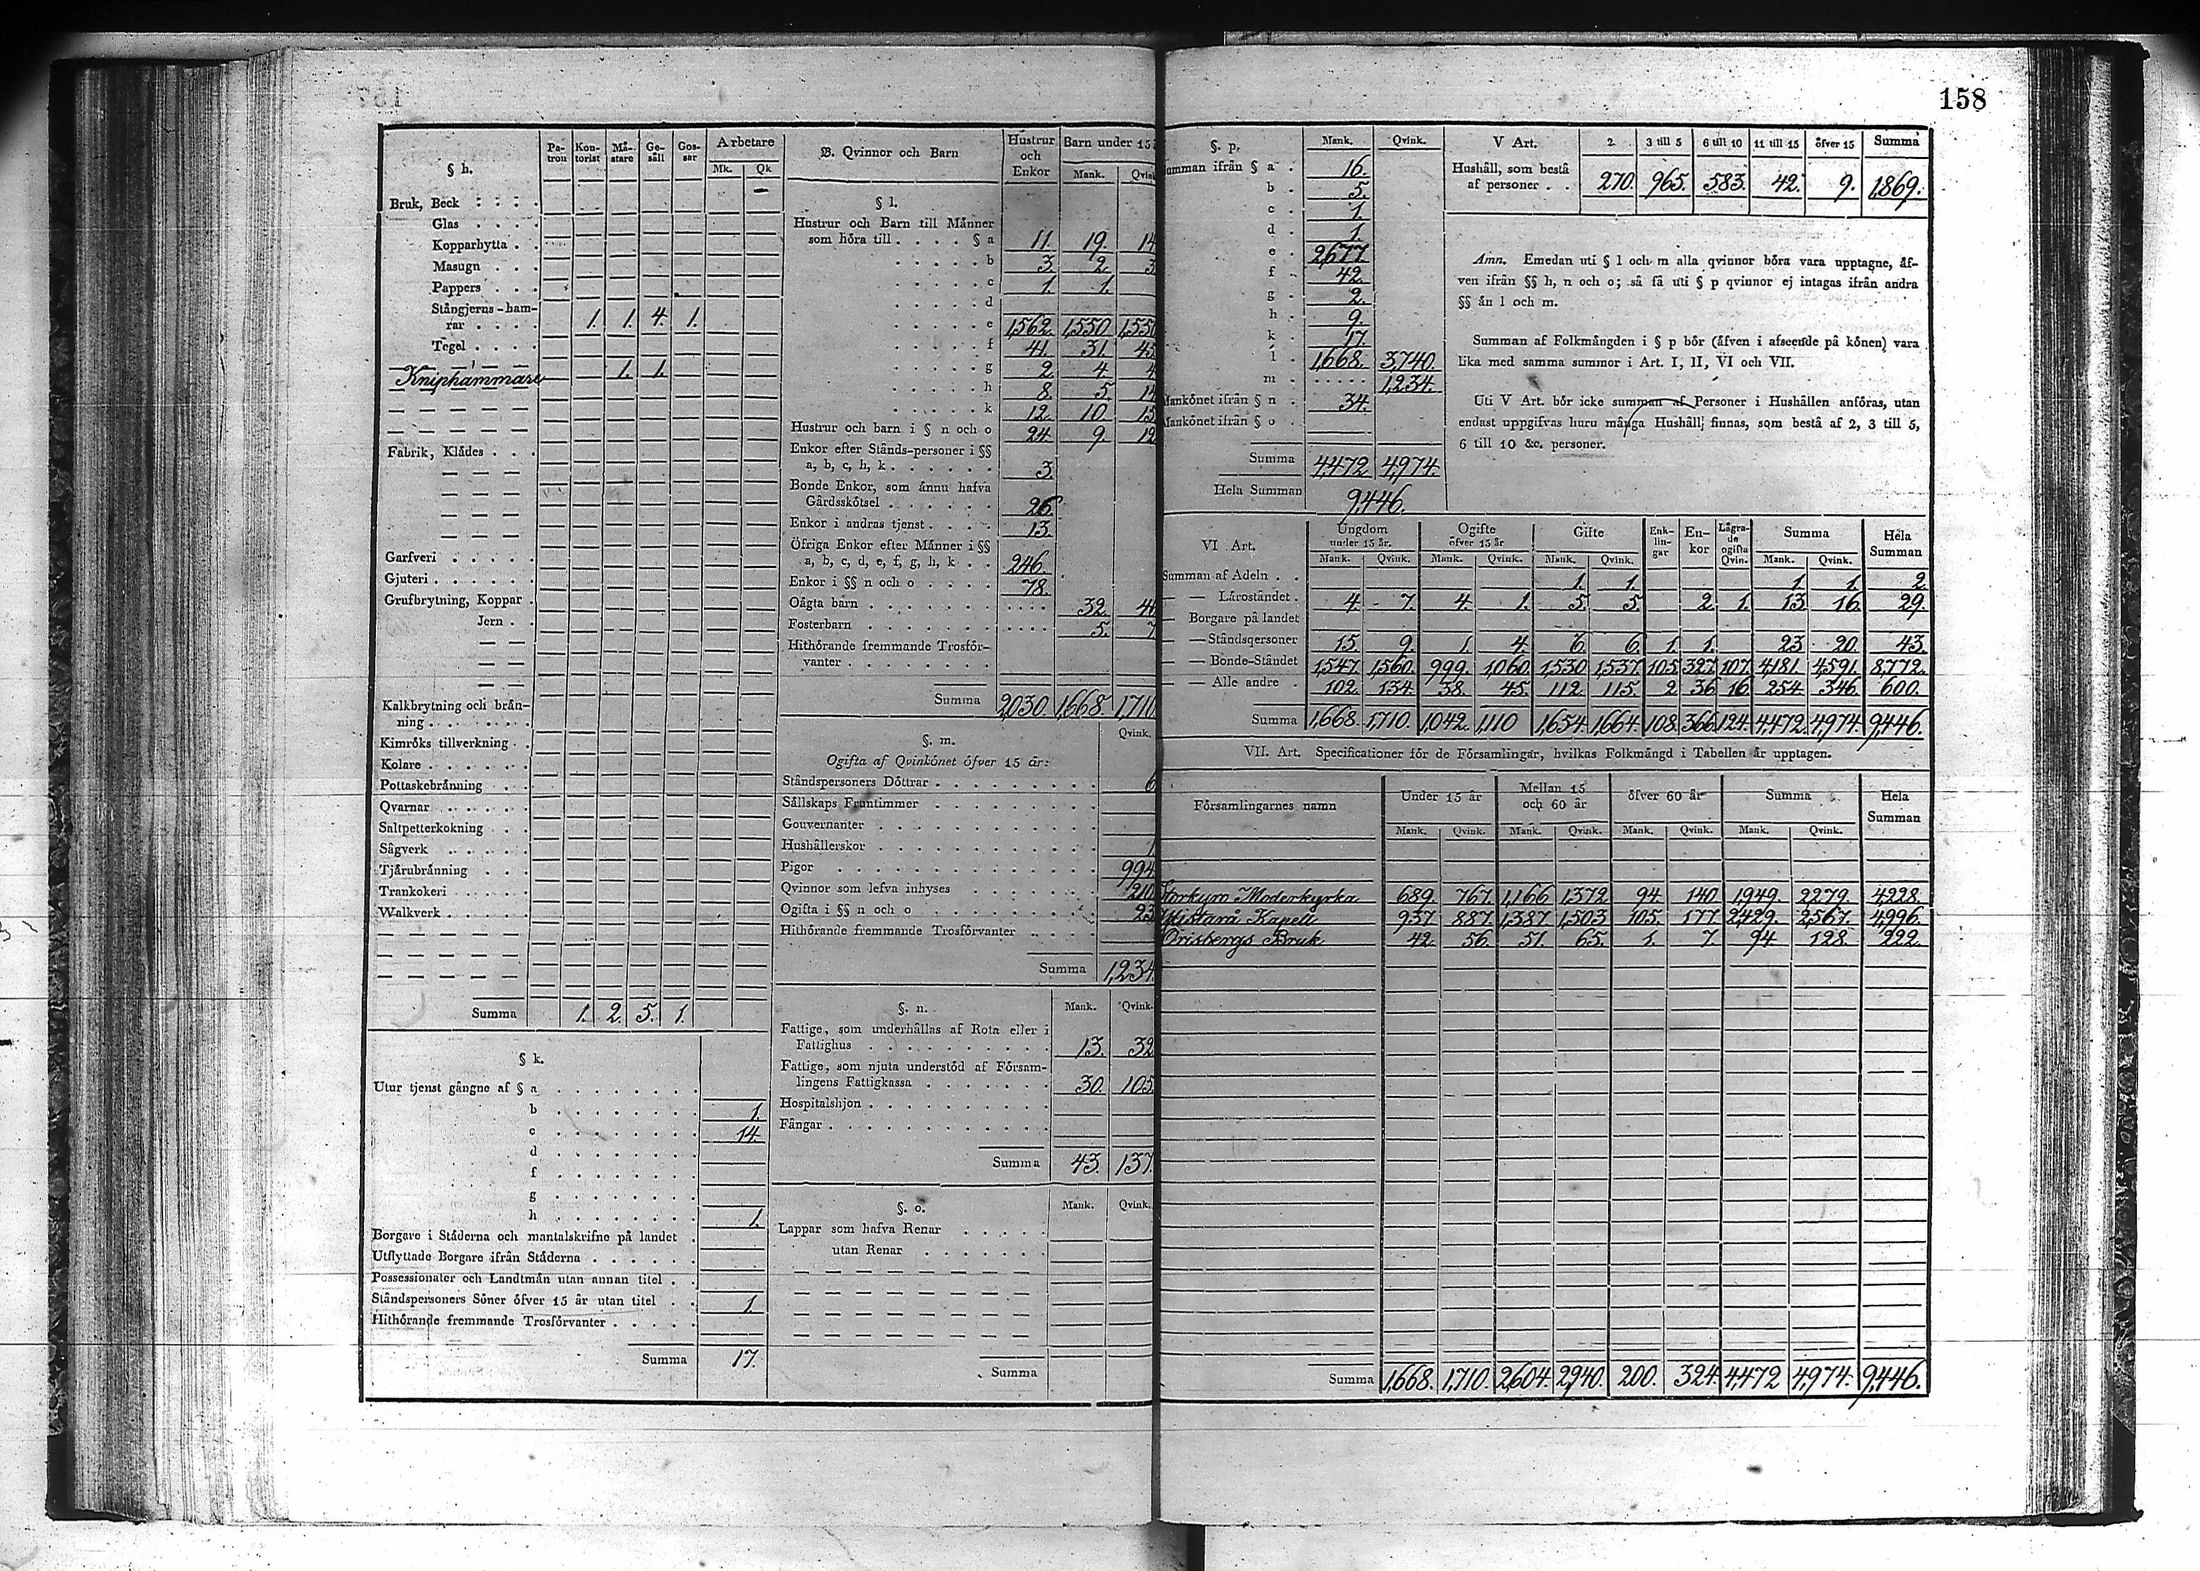 158
§ h.
Pa-tron Kon-torist Må-stare Ge-säll Gos-sar Arbetare
Mk. Qk
Bruk, Beck
Glas
Kopparhytta
Masugn
Pappers
Stångjerns-ham-
rar 1. 1. 4. 1.
Tegel
Kniphammare 1. 1.
Fabrik, Klådes
Garfveri
Gjuteri
Grufbrytning, Koppar
Jern
Kalkbrytning och brån-
ning
Kimröks tillverkning
Kolare
Pottaskebrånning
Qvarnar
Saltpetterkokning
Sågverk
Tjårubrånning
Trankokeri
Walkverk
Summa 1. 2. 5. 1.
§ k.
Utur tjenst gångne af § a
b 1.
c 14.
d
f
g
h 1.
Borgare i Ståderna och mantalskrifne på landet
Utflyttade Borgare ifrån Ståderna
Possessionater och Landtmån utan annan titel
Ståndspersoners Söner öfver 15 år utan titel 1.
Hithörande fremmande Trosförvanter
Summa 17.
B. Qvinnor och Barn Hustrur och Enkor Barn under 15
Mank. Qvink
§ l.
Hustrur och Barn till Månner
som höra till § a 11. 19. 14
b 3. 2. 3
c 1. 1.
d
e 1,562. 1,550. 1,55
f 41. 31. 45
g 2. 4. 4
h 8. 5. 14
k 12. 10. 15
Hustrur och barn i § n och o 24. 9. 12
Enkor efter Stånds-personer i §§
a, b, c, h, k 3.
Bonde Enkor, som ånnu hafva
Gårdsskötsel 26.
Enkor i andras tjenst 13.
Öfriga Enkor efter Månner i §§
a, b, c, d, e, f, g, h, k 246.
Enkor i §§ n och o 78.
Oågta barn 32. 4
Fosterbarn 5. 7.
Hithörande fremmande Trosför-
vanter
Summa 2,030. 1,668. 1,710.
§. m. Qvink.
Ogifta af Qvinkönet öfver 15 år:
Ståndspersoners Döttrar 6
Sållskaps Fruntimmer
Gouvernanter
Hushållerskor 1.
Pigor 994
Qvinnor som lefva inhyses 210
Ogifta i §§ n och o 23
Hithörande fremmande Trosförvanter
Summa 1,234
§. n. Mank. Qvink.
Fattige, som underhållas af Rota eller i
Fattighus 13. 32
Fattige, som njuta understöd af Försam-
lingens Fattigkassa 30. 105
Hospitalshjon
Fångar
Summa 43. 137.
§. o. Mank. Qvink.
Lappar som hafva Renar
utan Renar
Summa
§. p. Mank. Qvink.
umman ifrån § a 16.
b 5.
c 1.
d 1.
e 2,677.
f 42.
g 2.
h 9.
k 17.
l 1,668. 3,740.
m 1,234.
Mankönet ifrån § n 34.
Mankönet ifrån § o
Summa 4,472 4,974.
Hela Summan 9,446.
V Art. 2. 3 till 5 6 till 10 11 till 15 öfver 15 Summa
Hushåll, som bestå
af personer 270. 965. 583. 42. 9. 1,869.
Amn. Emedan uti § l och m alla qvinnor böra vara upptagne, åf-
ven ifrån §§ h, n och o; så få uti § p qvinnor ej intagas ifrån andra
§§ ån l och m.
Summan af Folkmångden i § p bör (åfven i afseende på könen) vara
lika med samma summor i Art. I, II, VI och VII.
Uti V Art. bör icke summan af Personer i Hushållen anföras, utan
endast uppgifvas huru många Hushåll finnas, som bestå af 2, 3 till 5,
6 till 10 &c. personer.
VI Art. Ungdom under 15 år. Ogifte öfver 15 år Gifte Enk-lin-gar En-kor Lågra-de ogifta Qvin. Summa Hela Summan
Mank. Qvink. Mank. Qvink. Mank. Qvink. Mank. Qvink.
Summan af Adeln 1. 1. 1. 1. 2.
— — Låroståndet 4. 7. 4. 1. 5. 5. 2. 1. 13. 16. 29.
— Borgare på landet
— — Ståndsqersoner 15. 9. 1. 4. 6. 6. 1. 1. 23. 20. 43.
— — Bonde-Ståndet 1,547. 1,560. 999. 1,060. 1,530. 1,537. 105. 327. 107. 4,181. 4,591. 8,772.
— — Alle andre 102. 134. 38. 45. 112. 115. 2. 36. 16. 254. 346. 600.
Summa 1,668. 1,710. 1,042. 1,110 1,654. 1,664. 108. 366. 124. 4,472. 4,974. 9,446.
VII. Art. Specificationer för de Församlingar, hvilkas Folkmångd i Tabellen år upptagen.
Församlingarnes namn Under 15 år Mellan 15 och 60 år öfver 60 år Summa Hela Summan
Mank. Qvink. Mank. Qvink. Mank. Qvink. Mank. Qvink.
Storkyro Moderkyrka 689. 767. 1,166 1,372 94. 140 1,949. 2,279. 4,228.
Ylistarå Kapell 937. 887. 1,387. 1,503 105. 177. 2,429. 2,567. 4,996.
Orisbergs Bruk 42. 56. 51. 65. 1. 7. 94 128. 222.
Summa 1,668. 1,710. 2,604. 2,940. 200. 324. 4,472 4,974. 9,446.